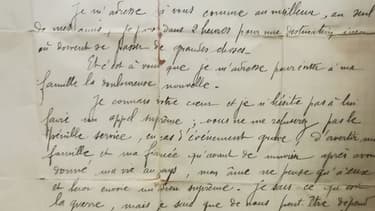 Je m'adresse à vous comme au meilleur, au seul
de mes amis, je pars dans 2 heures pour une destination
où doivent se passer de grandes choses.
Et c'est à vous que je m'adresse pour
famille la douloureuse nouvelle.
Je connais votre cœur et je n'hésite pas à lui
faire un appel suprême; vous ne me refuserez pas le
pénible service, en cas d'événement grave, d'avertir ma
famille et ma fiancée qu'avant de mourir après avoir
donné ma vie au pays, mon âme ne pense qu'à eux
et leur envoie un adieu suprême. Je sais ce qu'est
la guerre, mais je sais que de nous peut être dépend